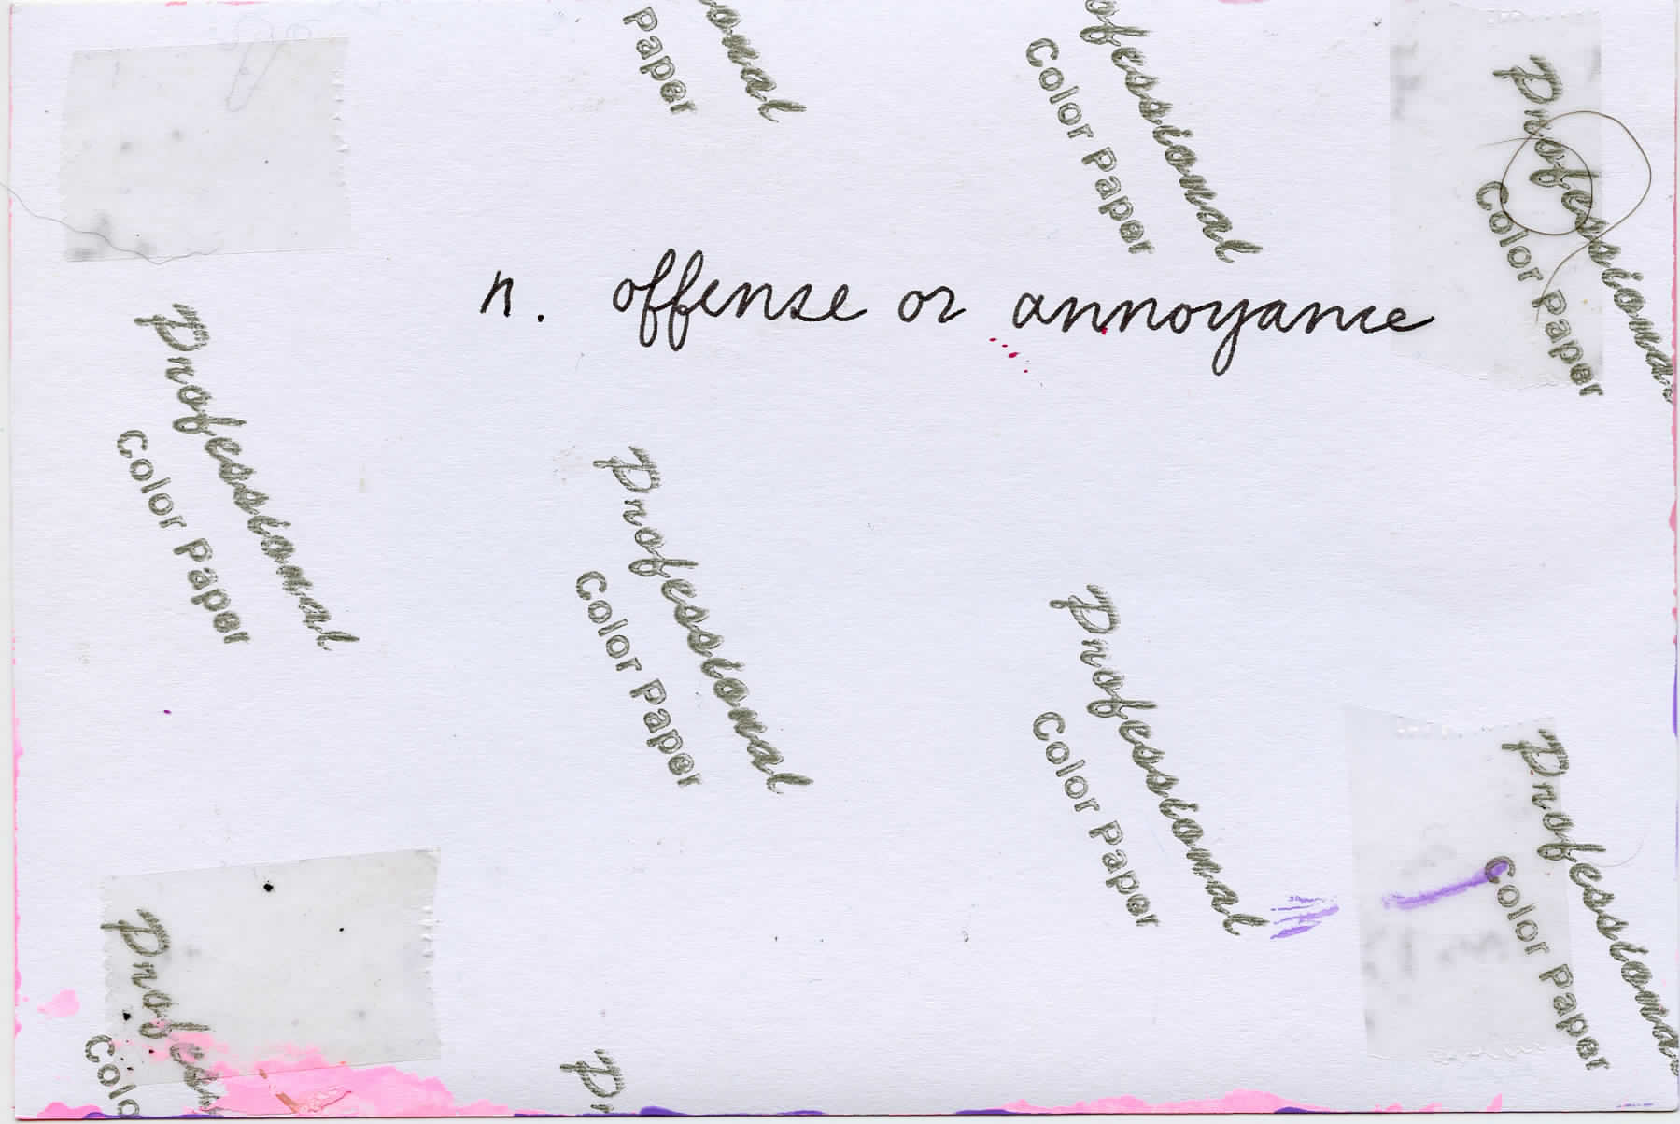 Paper
onal
ofessional
Color Paper
Professional
Color Paper
n. offense or annoyance
Professional
Color Paper
Professional
Color Paper
Professional
Color Paper
Professional
Color Paper
Profess
Colo
Pr